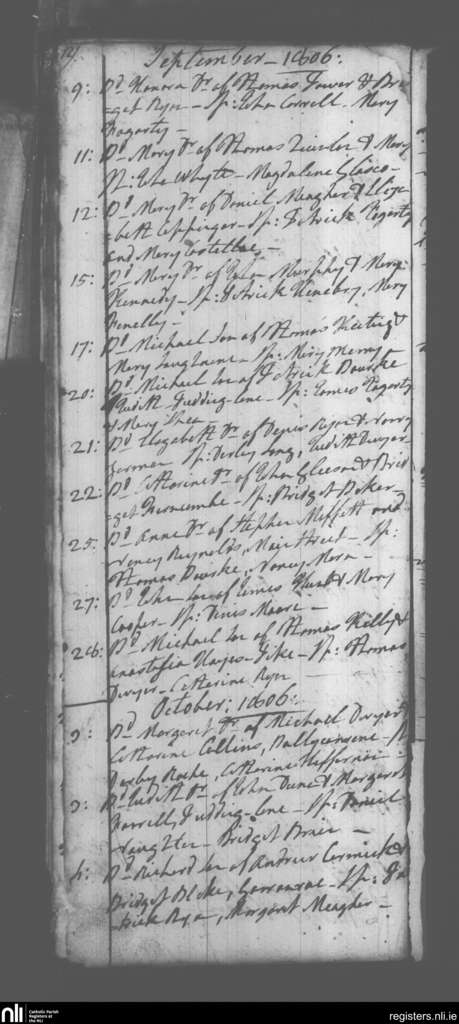 September - 1806:
9: Bd. Honora Dr. of Thomas Power & Bri=
=get Ryan - Sp: John Correll. Mary
Fogarty -
11: Bd. Mary Dr. of Thomas & Mary
Sp: John Whyte - Magdalene Glasco -
12: Bd. Mary Dr. of Daniel Meagher & Eliza
=beth Coppinger - Sp: Patrick Fogarty
and Mary Costelloe -
15: Bd. Mary Dr. of John Murphy & Mary
Kennedy - Sp: Patrick Kenebry, Mary
Fenelly -
17: Bd. Michael Son of Thomas Keating &
Mary - Sp: Mary
20: Bd. Michael Son of Patrick Bourke
Judith Pudding-lane - Sp: James Fogarty
& Mary Shea
21: Bd. Elizabeth Dr. of Denis Ryan & Nancy
Gorman Sp: Derby Long, Judith Dwyer
22: Bd. Catharine Dr. of John Gleeson & Brid
=get - Sp: Bridget Baker
25: Bd. Anne Dr. of Stephen Moffett and
Nancy Reynolds, Main Street - Sp:
Thomas Bourke, Nancy Mara -
27: Bd. John Son of James Hunt & Mary
Cooper - Sp: Denis Moore -
28: Bd. Michael Son of Thomas Kelly &
Anastasia Hayes - Pike - Sp: Thomas
Dwyer - Catharine Ryan
October: 1806:
3: Bd. Margaret Dr. of Michael Dwyer &
Catharine Collins, - Sp
Darby Roche, Catharine Heffernan -
3: Bd. Judith Dr. of John Dunn & Margaret
Farrell, Pudding-lane - Sp: Daniel
Naughten - Bridget Brien -
4: Bd. Richard Son of Andrew Cormick &
Bridget Blake, - Sp: Pa
=trick Ryan, Margaret Meagher -
nli
Catholic Parish
Registers at
the NLI
registers.nli.ie